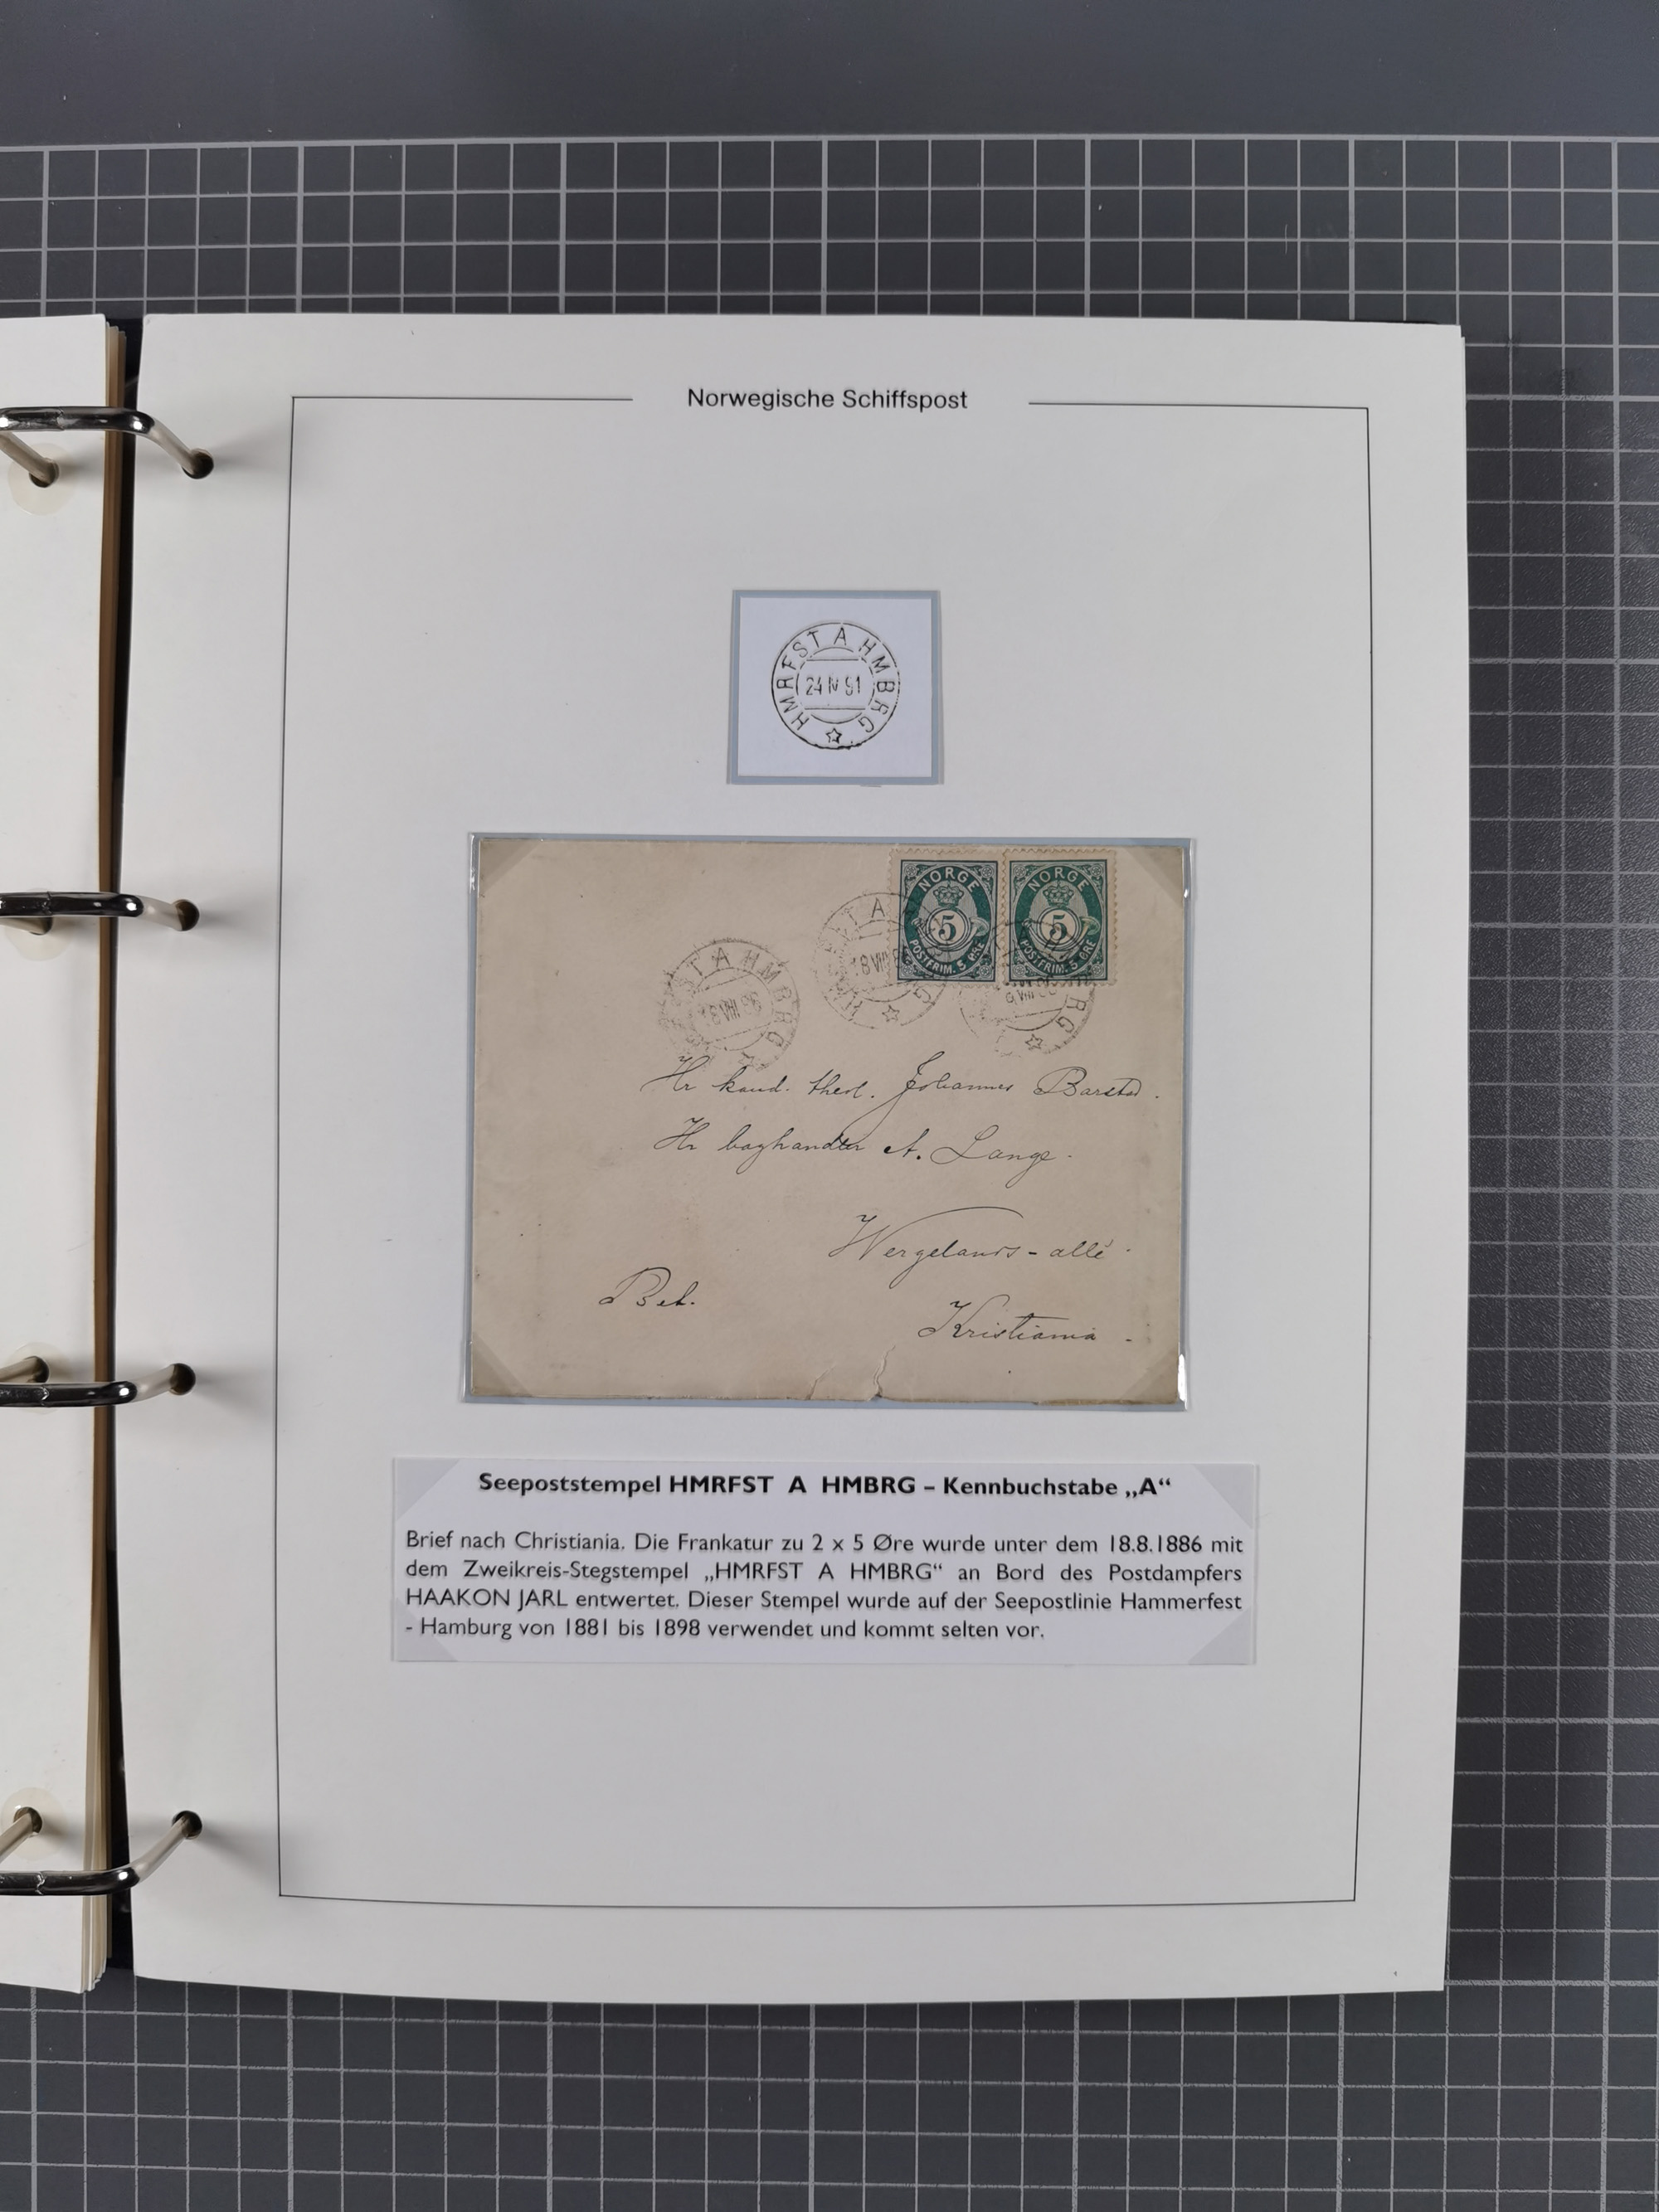 Norwegische Schiffspost
HMRFST A HMBRG
24 IV 91
NORGE
5
POSTFRIM. 5 ØRE
NORGE
5
POSTFRIM. 5 ØRE
T A
18 VIII
G
ST A HMBRG
18 VIII 86
RG
Hr kand. theol. Johannes Barstad.
Hr boghandler A. Lange.
Wergelands-allé.
Bet.
Kristiania.
Seepoststempel HMRFST A HMBRG – Kennbuchstabe „A“
Brief nach Christiania. Die Frankatur zu 2 x 5 Øre wurde unter dem 18.8.1886 mit
dem Zweikreis-Stegstempel „HMRFST A HMBRG“ an Bord des Postdampfers
HAAKON JARL entwertet. Dieser Stempel wurde auf der Seepostlinie Hammerfest
- Hamburg von 1881 bis 1898 verwendet und kommt selten vor.